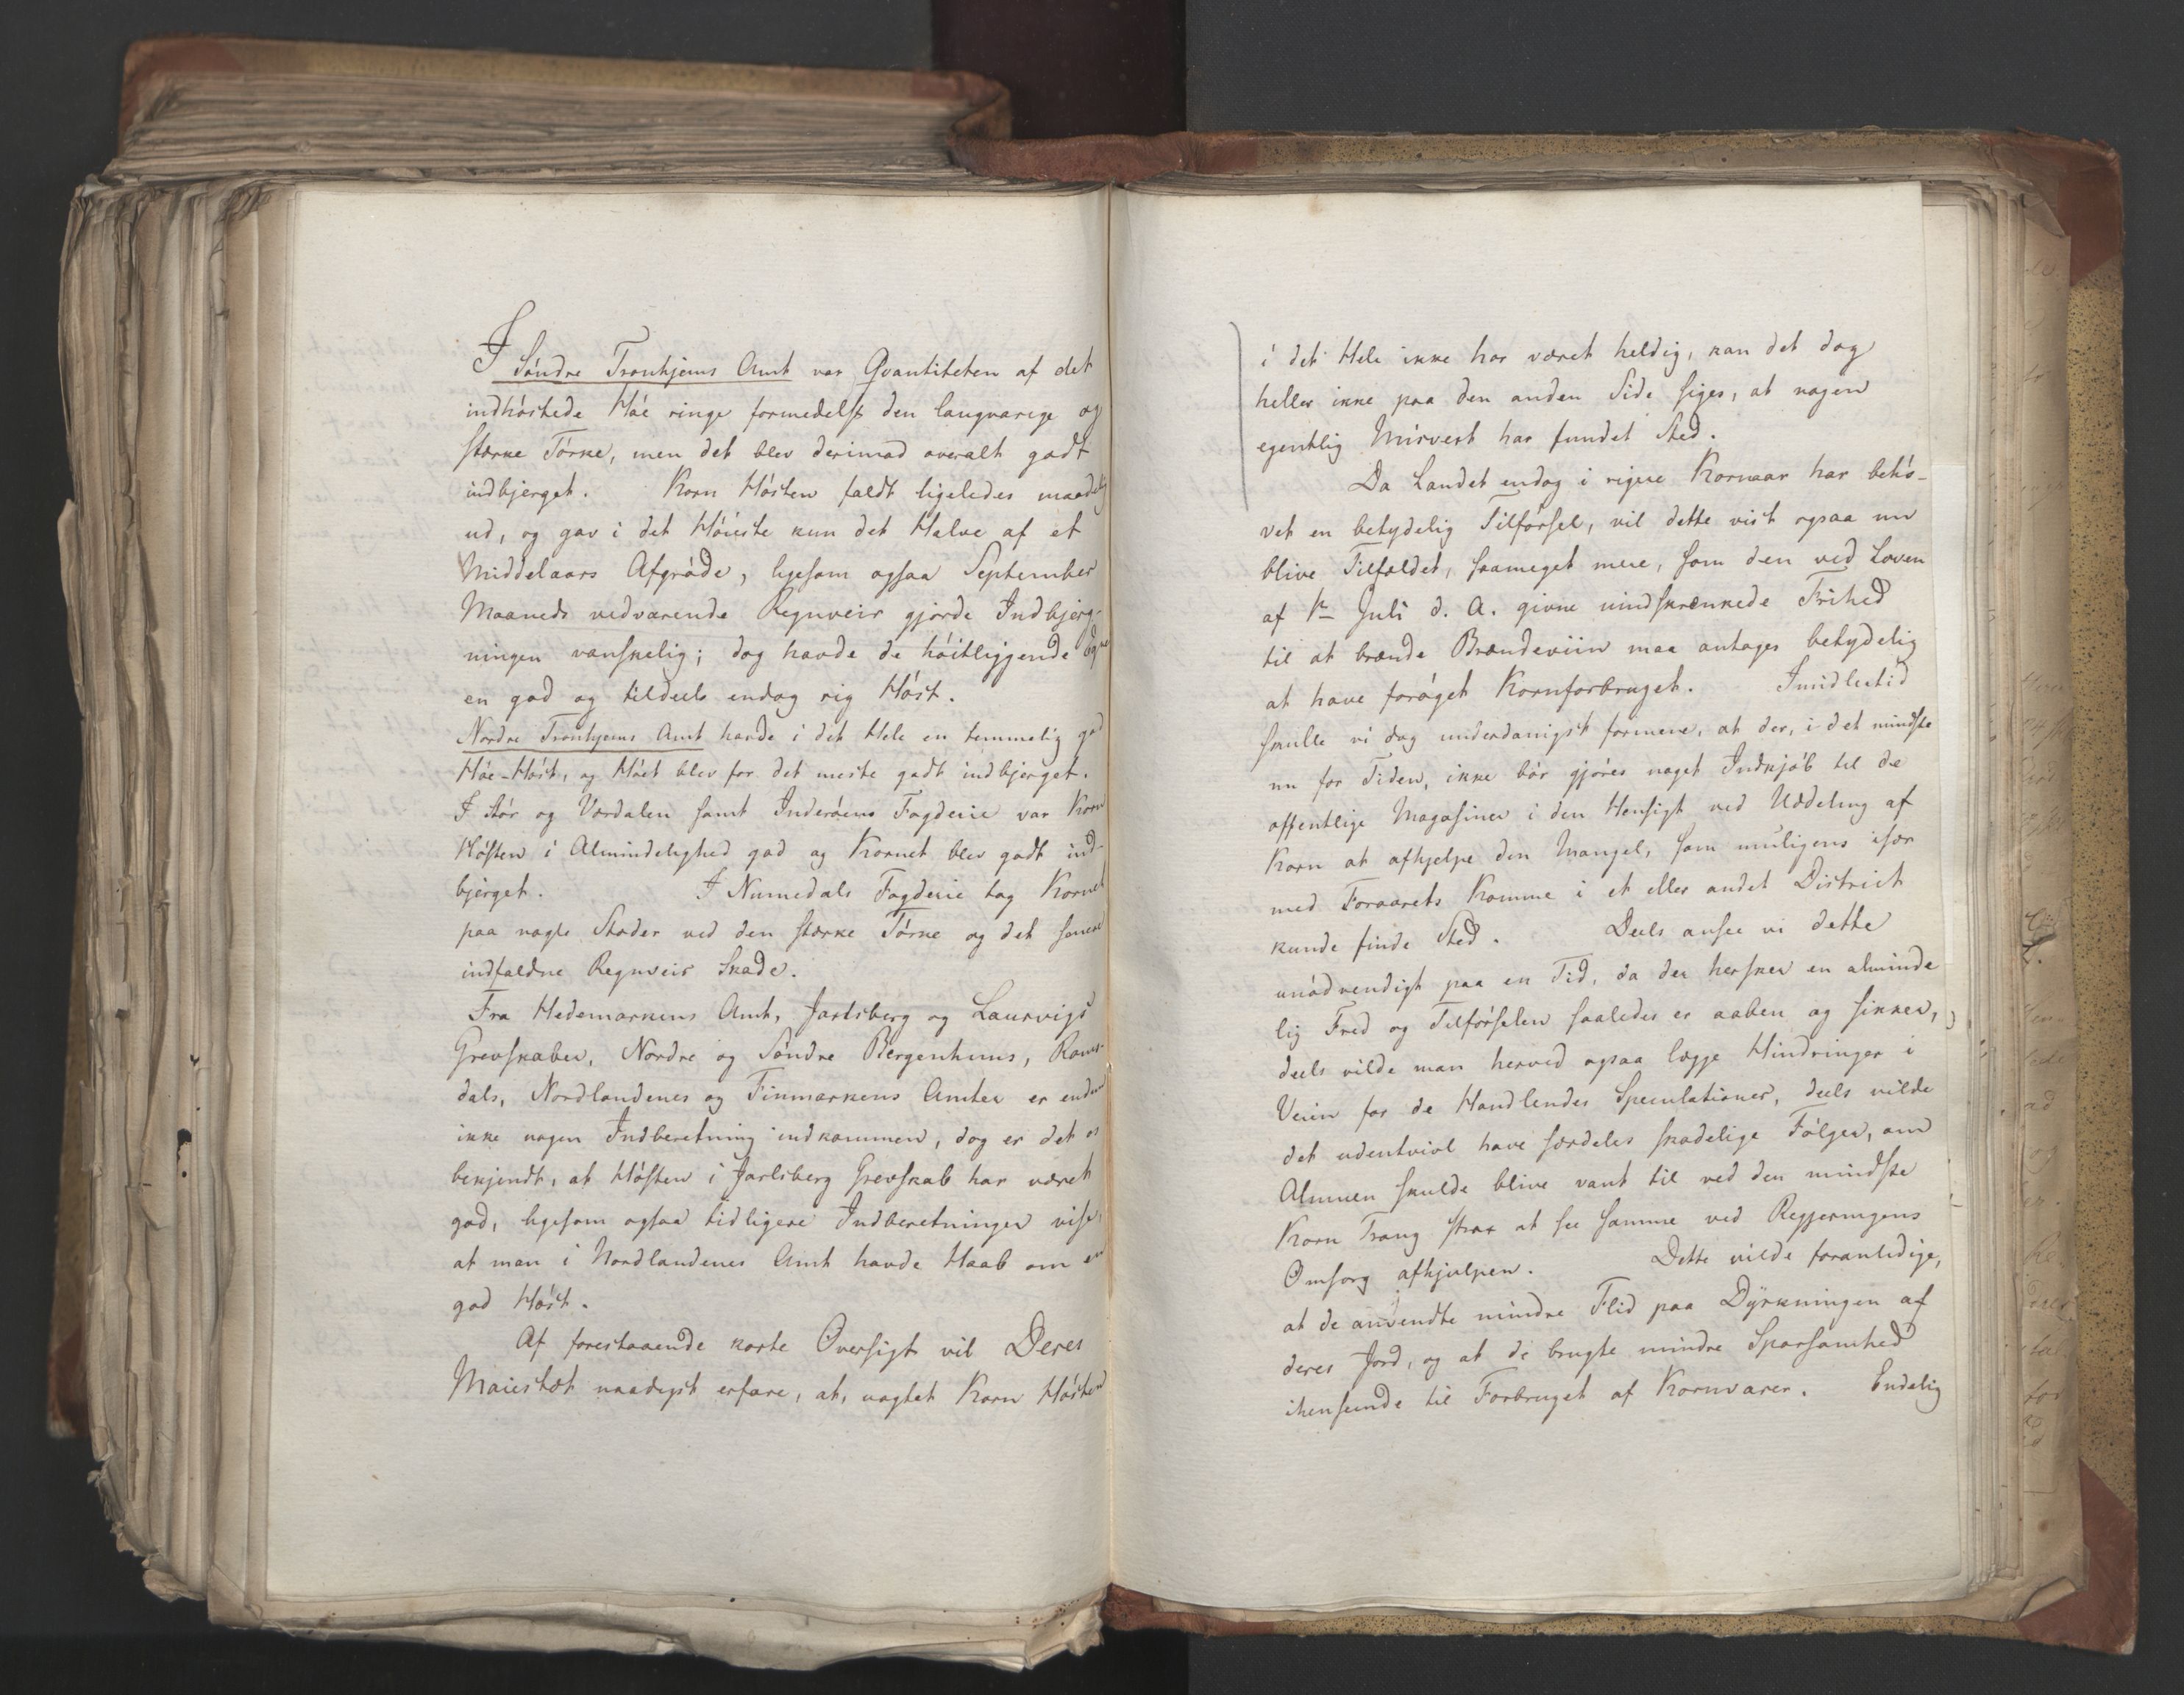 I Søndre Tronhjems Amt var Qvantiteten af det
indhøstede Høe ringe formedelst den langvarige og
stærke Tørke, men det blev derimod overalt godt
indbjerget. Korn Høsten faldt ligeledes maadelig
ud, og gav i det Høieste kun det Halve af et
Middelaars Afgrøde, ligesom ogsaa September
Maaneds vedvarende Regnveir gjorde Indbjerg-
ningen vanskelig; dog havde de høitliggende Egne
en god og tildeels endog rig Høst.
Nordre Tronhjems Amt havde i det Hele en temmelig god
Høe-Høst, og Høet blev for det meste godt indbjerget.
I Stør og Værdalen samt Inderøens Fogderie var Korn
Høsten i Almindelighed god og Kornet blev godt ind-
bjerget. I Numedals Fogderie tog Kornet
paa nogle Stæder ved den stærke Tørke og det senere
indfaldne Regnveir Skade.
Fra Hedemarkens Amt, Jarlsberg og Laurvigs
Grevskaber, Nordre og Søndre Bergenhuus, Roms-
dals, Nordlandenes og Finmarkens Amter er endnu
ikke nogen Indberetning indkommen, dog er det os
bekjendt, at Høsten i Jarlsberg Grevskab har været
god, ligesom ogsaa tidligere Indberetninger vise,
at man i Nordlandenes Amt havde Haab om en
god Høst.
Af forestaaende korte Oversigt vil Deres
Maiestæt naadigst erfare, at, uagtet Korn Høsten
i det Hele ikke har været heldig, kan det dog
heller ikke paa den anden Side siges, at nogen
egentlig Misvext har fundet Sted.
Da Landet endog i rigere Kornaar har behø-
vet en betydelig Tilførsel, vil dette vist ogsaa nu
blive Tilfældet, saameget mere, som den ved Loven
af 1ste Juli d. A. givne uindskrænkede Frihed
til at brænde Brændeviin maa antages betydelig
at have forøget Kornforbruget. Imidlertid
skulle vi dog underdanigst formene, at der, i det mindste
nu for Tiden, ikke bør gjøres noget Indkjøb til de
offentlige Magasiner i den Hensigt ved Uddeling af
Korn at afhjelpe den Mangel, som muligens især
med Foraarets Komme i et eller andet District
kunde finde Sted. Deels ansee vi dette
unødvendigt paa en Tid, da der hersker en alminde
lig Fred og Tilførselen saaledes er aaben og sikker,
deels vilde man herved ogsaa lægge Hindringer i
Veien for de Handlendes Speculationer, deels vilde
det udentvivl have særdeles skadelige Følger, om
Almuen skulde blive vant til ved den mindste
Korn Trang strax at see samme ved Regjeringens
Omsorg afhjulpen. Dette vilde foranledige,
at de anvendte mindre Flid paa Dyrkningen af
deres Jord, og at de brugte mindre Sparsomhed
ihenseende til Forbruget af Kornvarer. Endelig